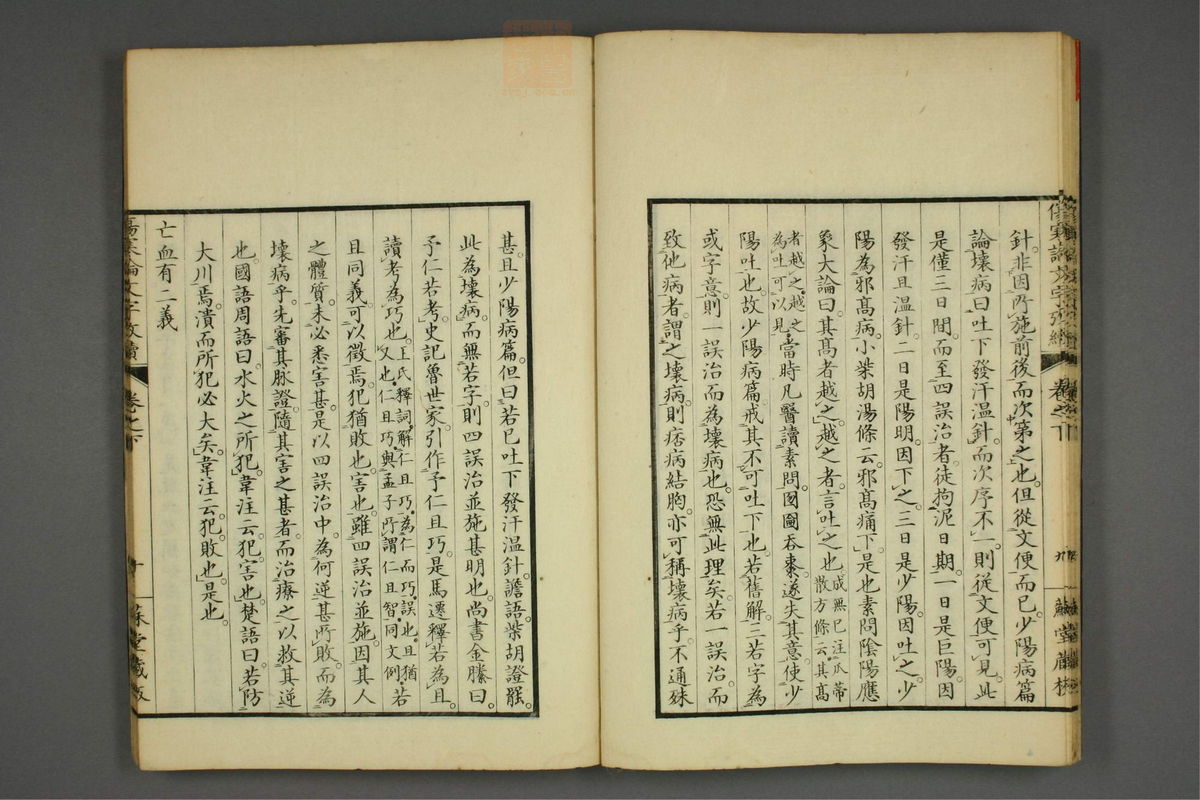 針。非因所施前後而次第之也。但從文便而已。少陽病篇
論壞病曰。吐下發汗温針。而次序不一。則從文便可見。此
是僅三日間。而至四誤治者。徒拘泥日期。一日是巨陽。因
發汗且温針。二日是陽明。因下之。三日是少陽。因吐之。少
陽為邪高病。小柴胡湯條云。邪高痛下是也。素問陰陽應
象大論曰。其高者越之。越之者。言吐之也。成無已注瓜蒂散方條云。其高
者越之。越之為吐可以見。當時凡醫讀素問。囫圇吞棗。遂失其意。使少
陽吐也。故少陽病篇。戒其不可吐下也。若舊解。三若字為
或字意。則一誤治而為壞病也。恐無此理矣。若一誤治。而
致他病者。謂之壞病。則痞病結胸。亦可稱壞病乎。不通殊
甚。且少陽病篇。但曰若已吐下發汗温針譫語。柴胡證罷。
此為壞病。而無若字。則四誤治並施甚明也。尚書金縢曰。
予仁若考。史記魯世家。引作予仁且巧。是馬遷釋若為且。
讀考為巧也。王氏釋詞。解仁且巧。為仁而巧。誤也。且猶又也。仁且巧。與孟子所謂仁且智。同文例。若
且同義。可以徵焉。犯猶敗也。害也。雖四誤治並施。因其人
之體質。未必悉害甚。是以四誤治中。為何逆甚所敗。而為
壞病乎。先審其脉證。隨其害之甚者。而治療之。以救其逆
也。國語周語曰。水火之所犯。韋注云。犯。害也。楚語曰。若防
大川焉。潰而所犯必大矣。韋注云。犯。敗也。是也。
亡血有二義
卷之下
十